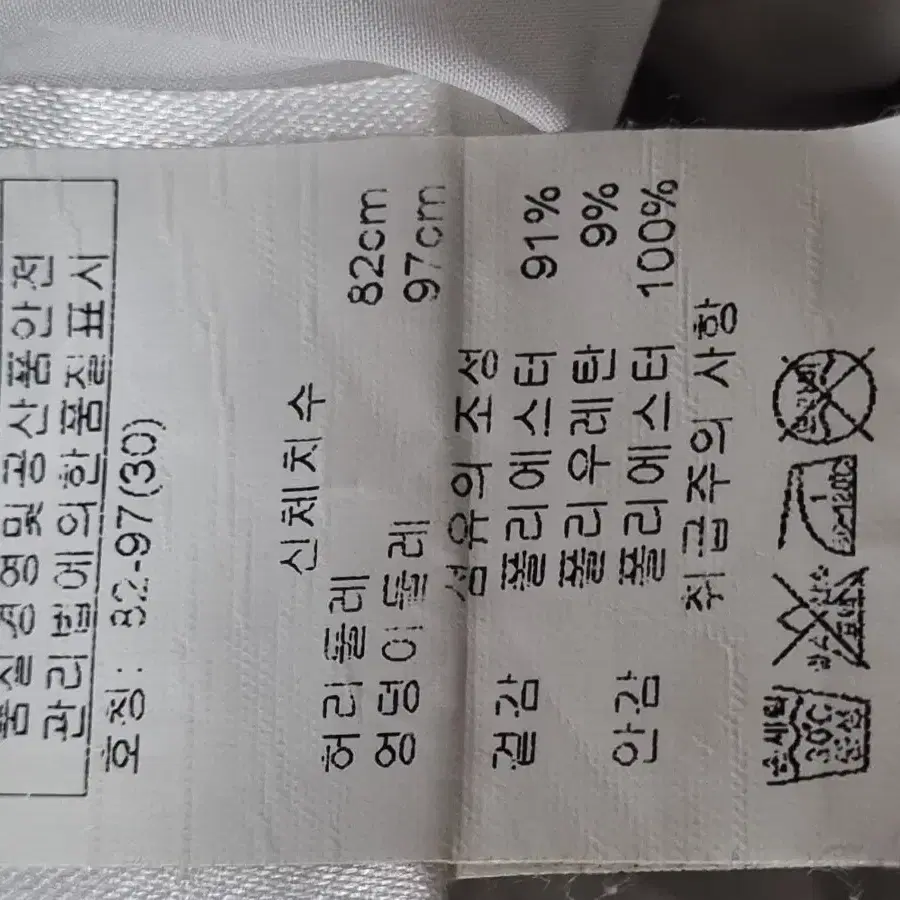 품질경영및공산품안전
관리법에의한품질표시
호칭: 82-97(30)
신체치수
허리둘레 82cm
엉덩이둘레 97cm
섬유의 조성
겉감 폴리에스터 91%
폴리우레탄 9%
안감 폴리에스터 100%
취급주의 사항
손세탁
30℃
중성